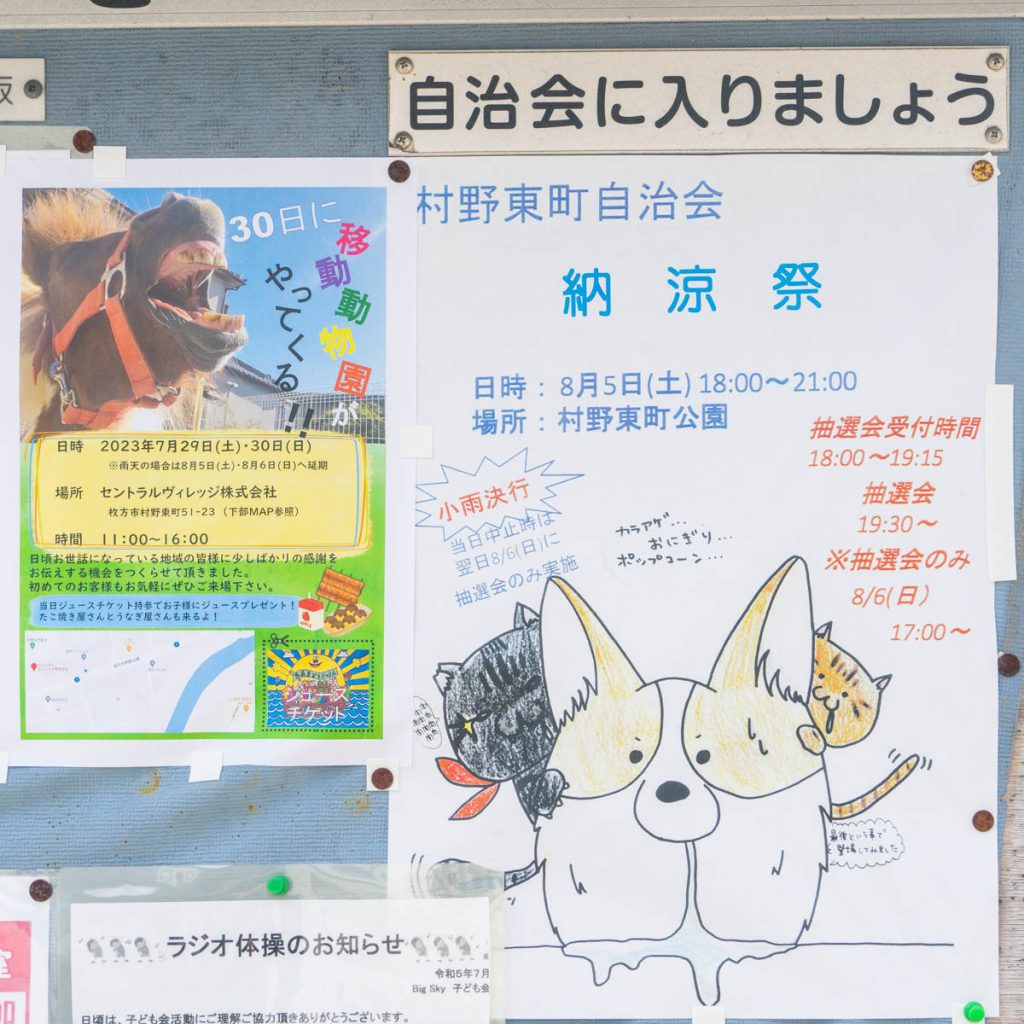 自治会に入りましょう
30日に
移動動物園が
やってくる!!
日時 2023年7月29日(土)・30日(日)
※雨天の場合は8月5日(土)・8月6日(日)へ延期
場所 セントラルヴィレッジ株式会社
枚方市村野東町51-23 (下部MAP参照)
時間 11:00～16:00
日頃お世話になっている地域の皆様に少しばかりの感謝を
お伝えする機会をつくらせて頂きました。
初めてのお客様もお気軽にぜひご来場下さい。
当日ジュースチケット持参でお子様にジュースプレゼント!
たこ焼き屋さんとうなぎ屋さんも来るよ!
APPLE
ジュース
チケット
村野東町自治会
納涼祭
日時：8月5日(土) 18:00～21:00
場所：村野東町公園
抽選会受付時間
18:00～19:15
抽選会
19:30～
※抽選会のみ
8/6(日)
17:00～
小雨決行
当日中止時は
翌日8/6(日)に
抽選会のみ実施
カラアゲ...
おにぎり...
ポップコーン...
最後という事で
登場してみました
ラジオ体操のお知らせ
令和5年7月
Big Sky 子ども会
日頃は、子ども会活動にご理解ご協力頂きありがとうございます。